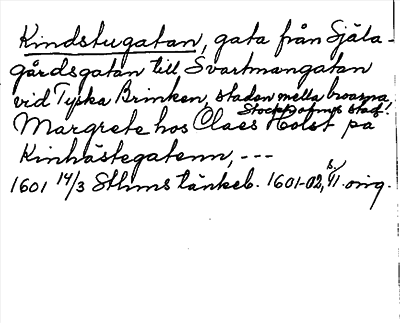 Kindstugatan, gata från Själa-
gårdsgatan till Svartmangatan
vid Tyska Brinken, staden mella broarna,
Stockholms stad.
Margrete hos Claes Holst på
Kinhästegatenn, ---
1601 14/3 Sthms tänkeb. 1601-02, s. 41. orig.